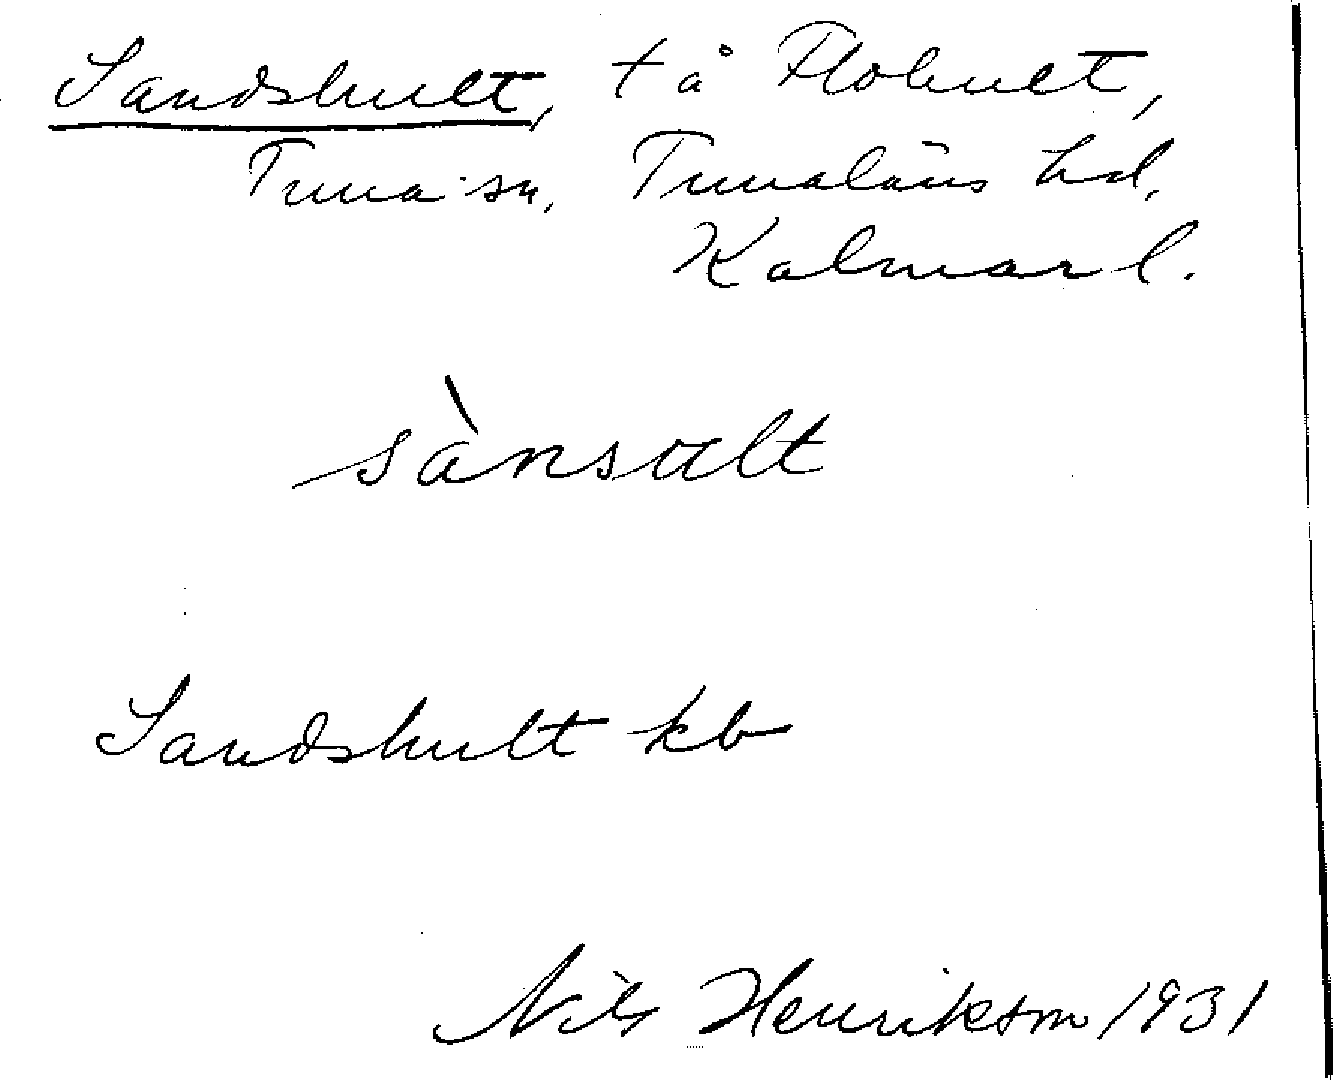 Sandshult, t å Flohult,
Tuna sn, Tunaläns hd.
Kalmar l.
sànsɷlt
Sandshult kb
Nils Henrikson 1931